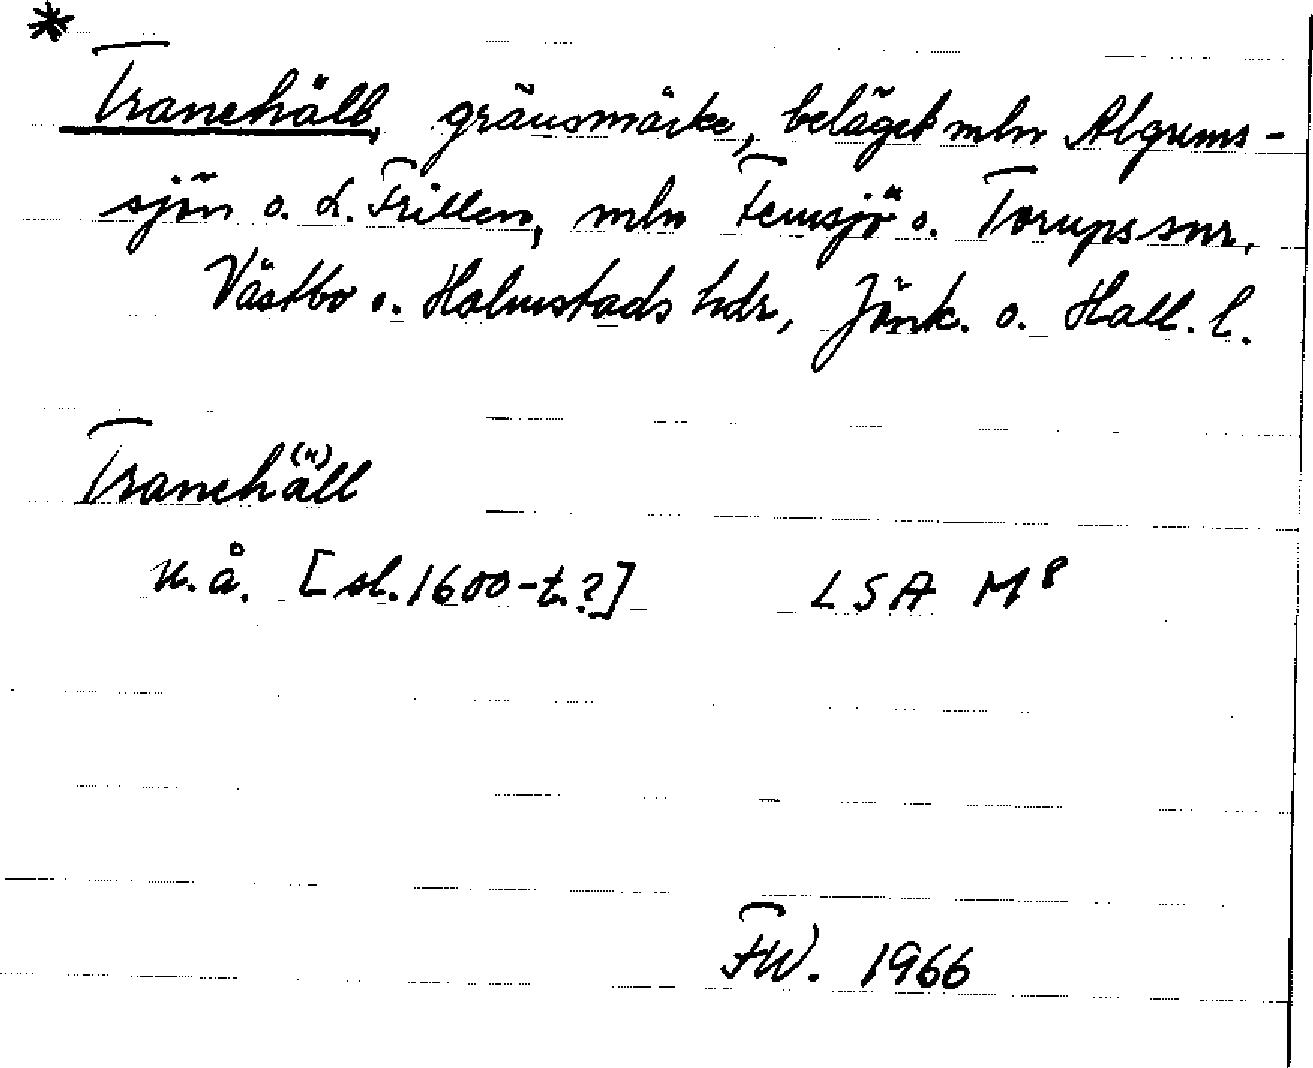 *
Tranehäll, gränsmärke, beläget mln Algrims-
sjön o. L. Frillen, mln Femsjö o. Torups snr,
Västbo o. Halmstads hdr, Jönk. o. Hall. l.
Traneha(̈)ll
u. å. [sl. 1600-t.?] LSA M⁸
FW. 1966